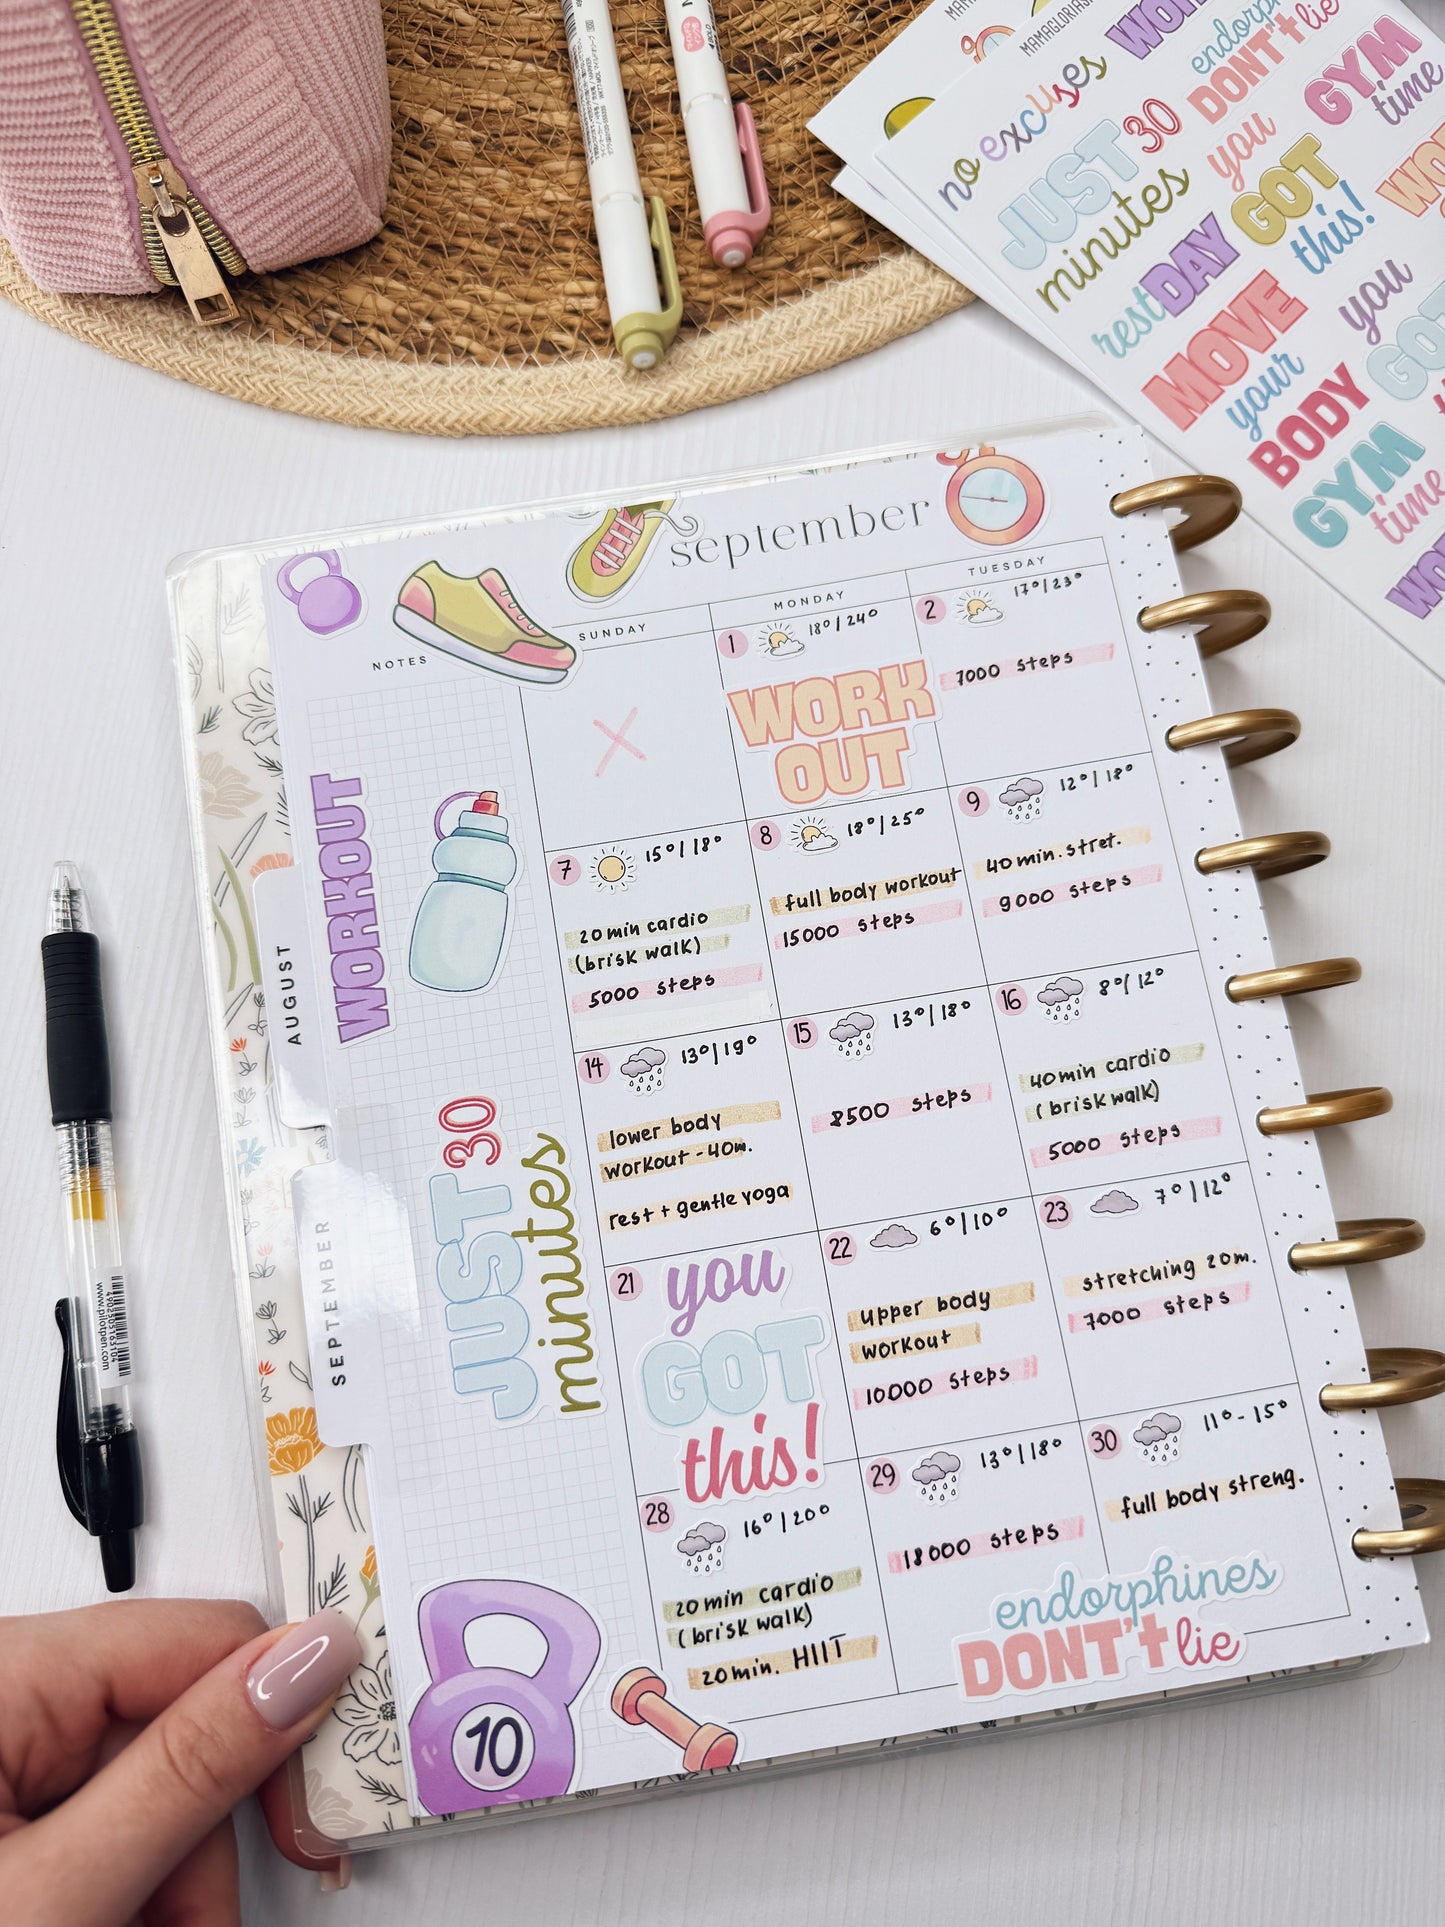 no excuses
WOR
endorph
DON'T lie
JUST 30
minutes
you
GOT
this!
GYM
time
rest DAY
MOVE
your
BODY
you
GOT
GYM
time
september
NOTES
SUNDAY
MONDAY
TUESDAY
1 18°/24°
WORK
OUT
2 17°/23°
7000 steps
7 15°/18°
20 min cardio
(brisk walk)
5000 steps
8 18°/25°
full body workout
15000 steps
9 12°/18°
40 min. stret.
9000 steps
14 13°/19°
lower body
workout - 40m.
rest + gentle yoga
15 13°/18°
8500 steps
16 8°/12°
40 min cardio
(brisk walk)
5000 steps
21
you
GOT
this!
22 6°/10°
upper body
workout
10000 steps
23 7°/12°
stretching 20m.
7000 steps
28 16°/20°
20 min cardio
(brisk walk)
20 min. HIIT
29 13°/18°
18000 steps
30 11°-15°
full body streng.
endorphines
DON'T lie
WORKOUT
JUST 30
minutes
10
AUGUST
SEPTEMBER
4902505163104
www.pilotpen.com